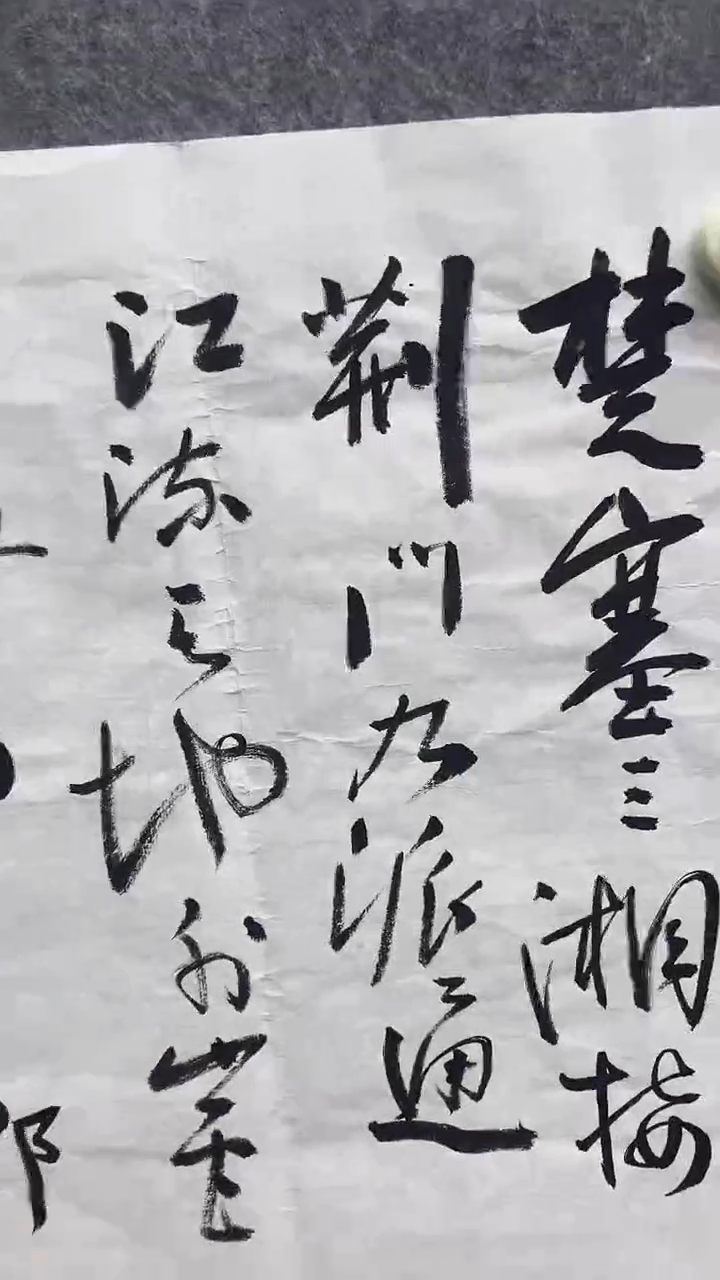 楚塞三湘接
荆门九派通
江流天地外山色